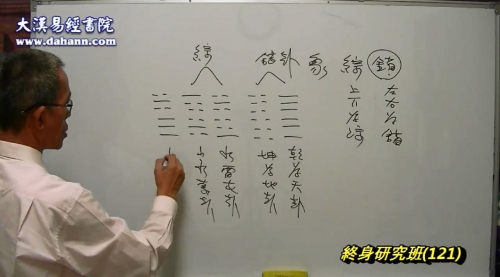 大漢易經書院
www.dahann.com
錯:左右為錯
綜 上下為綜
象
錯卦
乾為天卦
坤為地卦
綜
水雷屯卦
山水蒙卦
終身研究班(121)